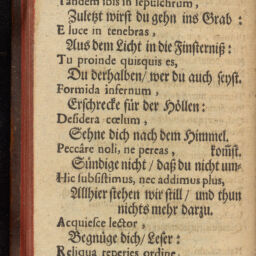 Tandem ibis in sepulchrum,
Zuletzt wirst du gehn ins Grab:
E luce in tenebras,
Aus dem Licht in die Finsterniß:
Tu proinde quisquis es,
Du derhalben/ wer du auch seyst.
Formida infernum,
Erschrecke für der Höllen:
Desidera cœlum,
Sehne dich nach dem Himmel.
Peccâre noli, ne pereas, komst.
Sündige nicht/ daß du nicht um-
Hic subsistimus, nec addimus plus,
Allhier stehen wir still/ und thun
nichts mehr darzu.
Acquiesce lector,
Begnüge dich/ Leser:
Reliqua reperies ordine.